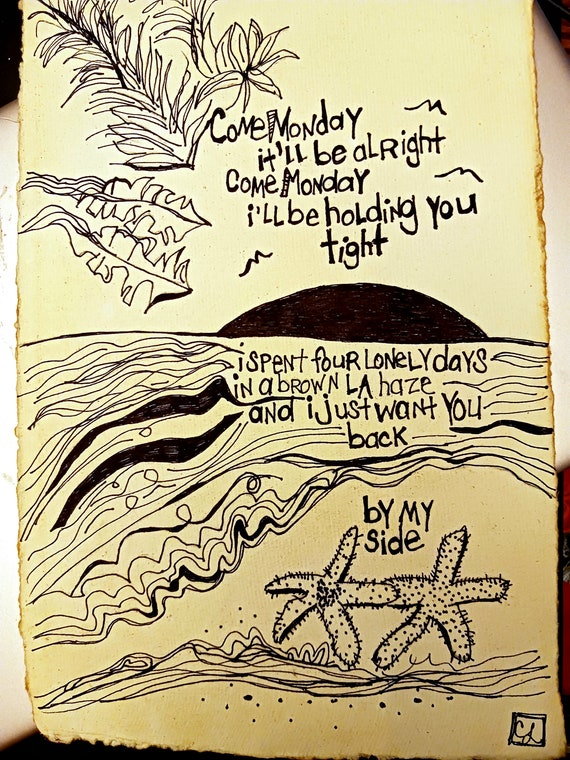 Come Monday
it'll be alright
Come Monday
i'll be holding you
tight
i spent four lonely days
in a brown LA haze
and i just want you
back
by my
side
CL